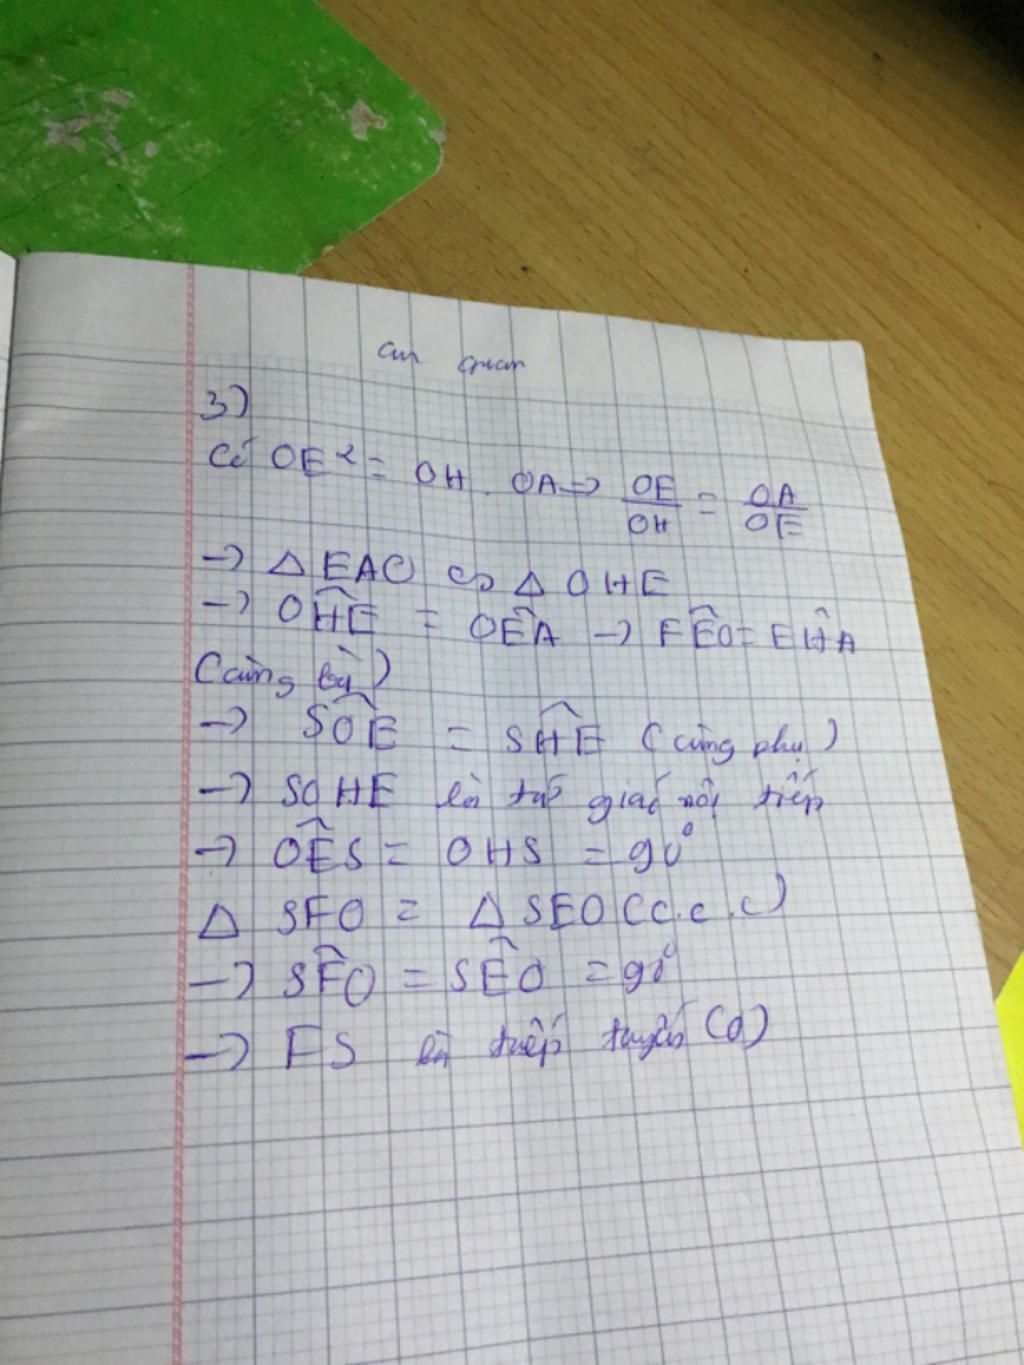 3)
Có OE² = OH . OA => OE/OH = OA/OE
-> Δ EAO ∽ Δ OHE
-> OĤE = OÊA -> FÊO = EĤA
(cùng bù)
-> SÔE = SĤE (cùng phụ)
-> SOHE là tứ giác nội tiếp
-> OÊS = OHS = 90°
Δ SFO = Δ SEO (c.c.c)
-> SF̂O = SÊO = 90°
-> FS là tiếp tuyến (O)